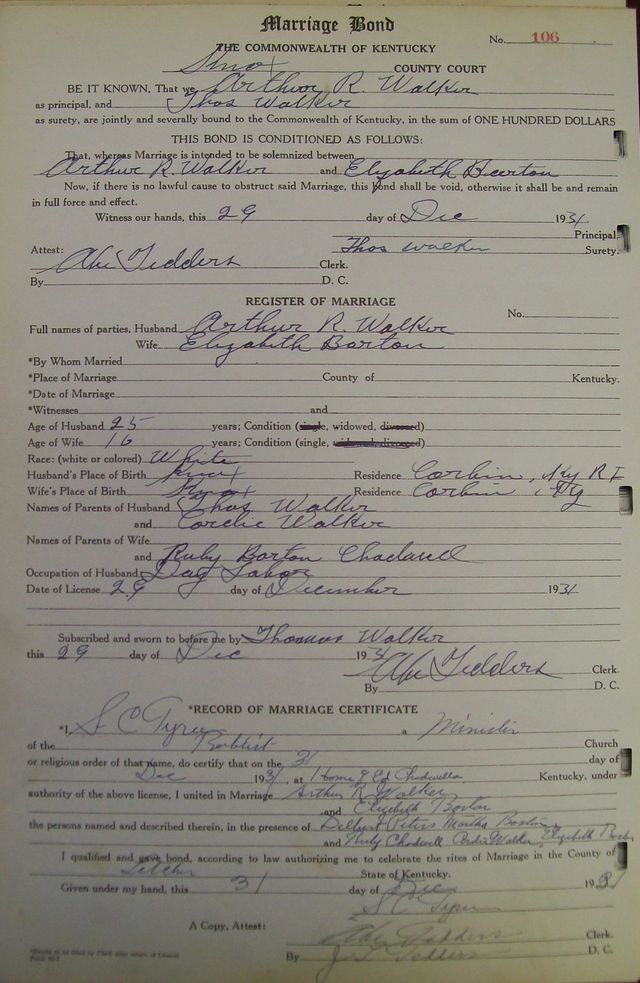 Marriage Bond
No. 106
THE COMMONWEALTH OF KENTUCKY
Knox COUNTY COURT
BE IT KNOWN, That we, Arthur R. Walker
as principal, and Thos Walker
as surety, are jointly and severally bound to the Commonwealth of Kentucky, in the sum of ONE HUNDRED DOLLARS
THIS BOND IS CONDITIONED AS FOLLOWS:
That, whereas Marriage is intended to be solemnized between
Arthur R. Walker and Elizabeth Barton
Now, if there is no lawful cause to obstruct said Marriage, this bond shall be void, otherwise it shall be and remain
in full force and effect.
Witness our hands, this 29 day of Dec 1931.
Principal.
Thos Walker Surety.
Attest:
Abe Tedders Clerk.
By D. C.
REGISTER OF MARRIAGE
No.
Full names of parties, Husband Arthur R. Walker
Wife Elizabeth Barton
*By Whom Married
*Place of Marriage County of Kentucky.
*Date of Marriage
*Witnesses and
Age of Husband 25 years; Condition (single, widowed, divorced)
Age of Wife 16 years; Condition (single, widowed, divorced)
Race: (white or colored) White
Husband's Place of Birth Knox Residence Corbin, Ky R I
Wife's Place of Birth Knox Residence Corbin, Ky
Names of Parents of Husband Thos. Walker
and Cordie Walker
Names of Parents of Wife
and Ruby Barton Chadwell
Occupation of Husband Day Labor
Date of License 29 day of December 1931
Subscribed and sworn to before me by Thomas Walker
this 29 day of Dec 1931
Abe Tedders Clerk.
By D. C.
*RECORD OF MARRIAGE CERTIFICATE
*I, S C Tyree a Minister
of the Baptist Church
or religious order of that name, do certify that on the 31 day of
Dec 1931, at Home of Ed Chadwells Kentucky, under
authority of the above license, I united in Marriage Arthur R. Walker
and Elizabeth Barton
the persons named and described therein, in the presence of Delbert Peters Martha Boston
and Ruby Chadwell Cordie Walker, Elizabeth
I qualified and gave bond, according to law authorizing me to celebrate the rites of Marriage in the County of
Letcher State of Kentucky.
Given under my hand, this 31 day of Dec 1931
S C Tyree
A Copy, Attest:
Abe Tedders Clerk.
By J. Tedders D. C.